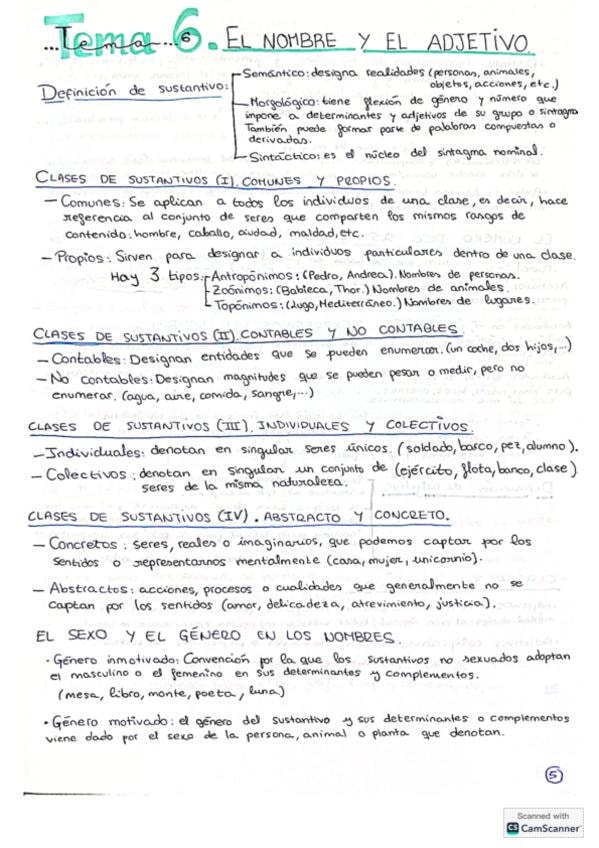 ...Tema...6
Tema 6. EL NOMBRE Y EL ADJETIVO
Definición de sustantivo:
Semántico: designa realidades (personas, animales,
objetos, acciones, etc.)
Morfológico: tiene flexión de género y número que
impone a determinantes y adjetivos de su grupo o sintagma
También puede formar parte de palabras compuestas o
derivadas.
Sintáctico: es el núcleo del sintagma nominal.
CLASES DE SUSTANTIVOS (I). COMUNES Y PROPIOS.
– Comunes: Se aplican a todos los individuos de una clase, es decir, hace
referencia al conjunto de seres que comparten los mismos rasgos de
contenido: hombre, caballo, ciudad, maldad, etc.
– Propios: Sirven para designar a individuos particulares dentro de una clase.
Hay 3 tipos: Antropónimos: (Pedro, Andrea). Nombres de personas.
Zoónimos: (Babieca, Thor.) Nombres de animales.
Topónimos: (Lugo, Mediterráneo.) Nombres de lugares.
CLASES DE SUSTANTIVOS (II). CONTABLES Y NO CONTABLES.
– Contables: Designan entidades que se pueden enumerar. (un coche, dos hijos,...)
– No contables: Designan magnitudes que se pueden pesar o medir, pero no
enumerar. (agua, aire, comida, sangre,...)
CLASES DE SUSTANTIVOS (III). INDIVIDUALES Y COLECTIVOS.
– Individuales: denotan en singular seres únicos (soldado, barco, pez, alumno).
– Colectivos: denotan en singular un conjunto de (ejército, flota, banco, clase).
seres de la misma naturaleza.
CLASES DE SUSTANTIVOS (IV). ABSTRACTO Y CONCRETO.
– Concretos: seres, reales o imaginarios, que podemos captar por los
sentidos o representarnos mentalmente (casa, mujer, unicornio).
– Abstractos: acciones, procesos o cualidades que generalmente no se
captan por los sentidos (amor, delicadeza, atrevimiento, justicia).
EL SEXO Y EL GÉNERO EN LOS NOMBRES.
· Género inmotivado: Convención por la que los sustantivos no sexuados adoptan
el masculino o el femenino en sus determinantes y complementos.
(mesa, libro, monte, poeta, luna)
· Género motivado: el género del sustantivo y sus determinantes o complementos
viene dado por el sexo de la persona, animal o planta que denotan.
5
Scanned with
CS CamScanner